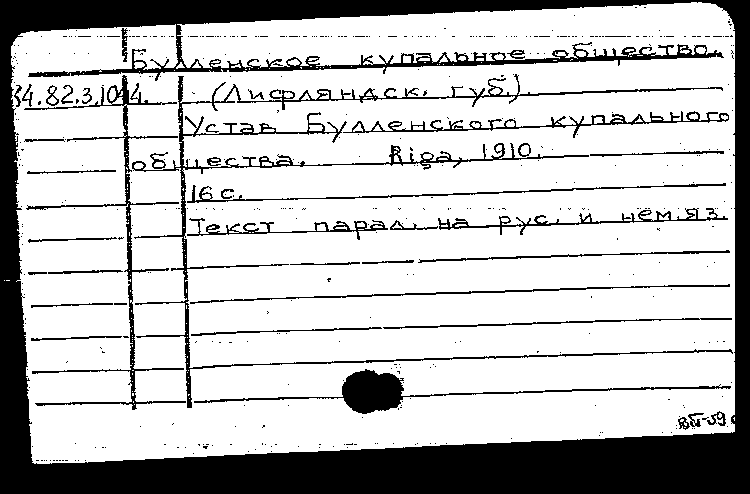 Булленское купальное общество.
34.82.3.1044. (Лифляндск. губ.).
Устав Булленского купального
общества. Riga, 1910.
16 с.
Текст парал. на рус. и нем. яз.